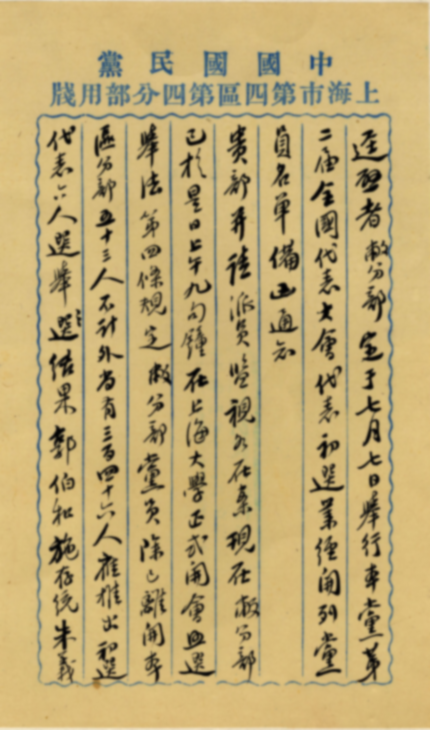 中國國民黨
上海市第四區第四分部用牋
逕啓者敝分部定于七月七日舉行本黨第
二屆全國代表大會代表初選業經開列黨
員名單備函通知
貴部并請派員監視各在案現在敝分部
已於是日上午九句鐘在上海大學正式開會照選
舉法第四條規定敝分部黨員除已離開本
區分部五十三人不計外尚有三百四十六人應推出初選
代表六人選舉結果郭伯和施存統朱義